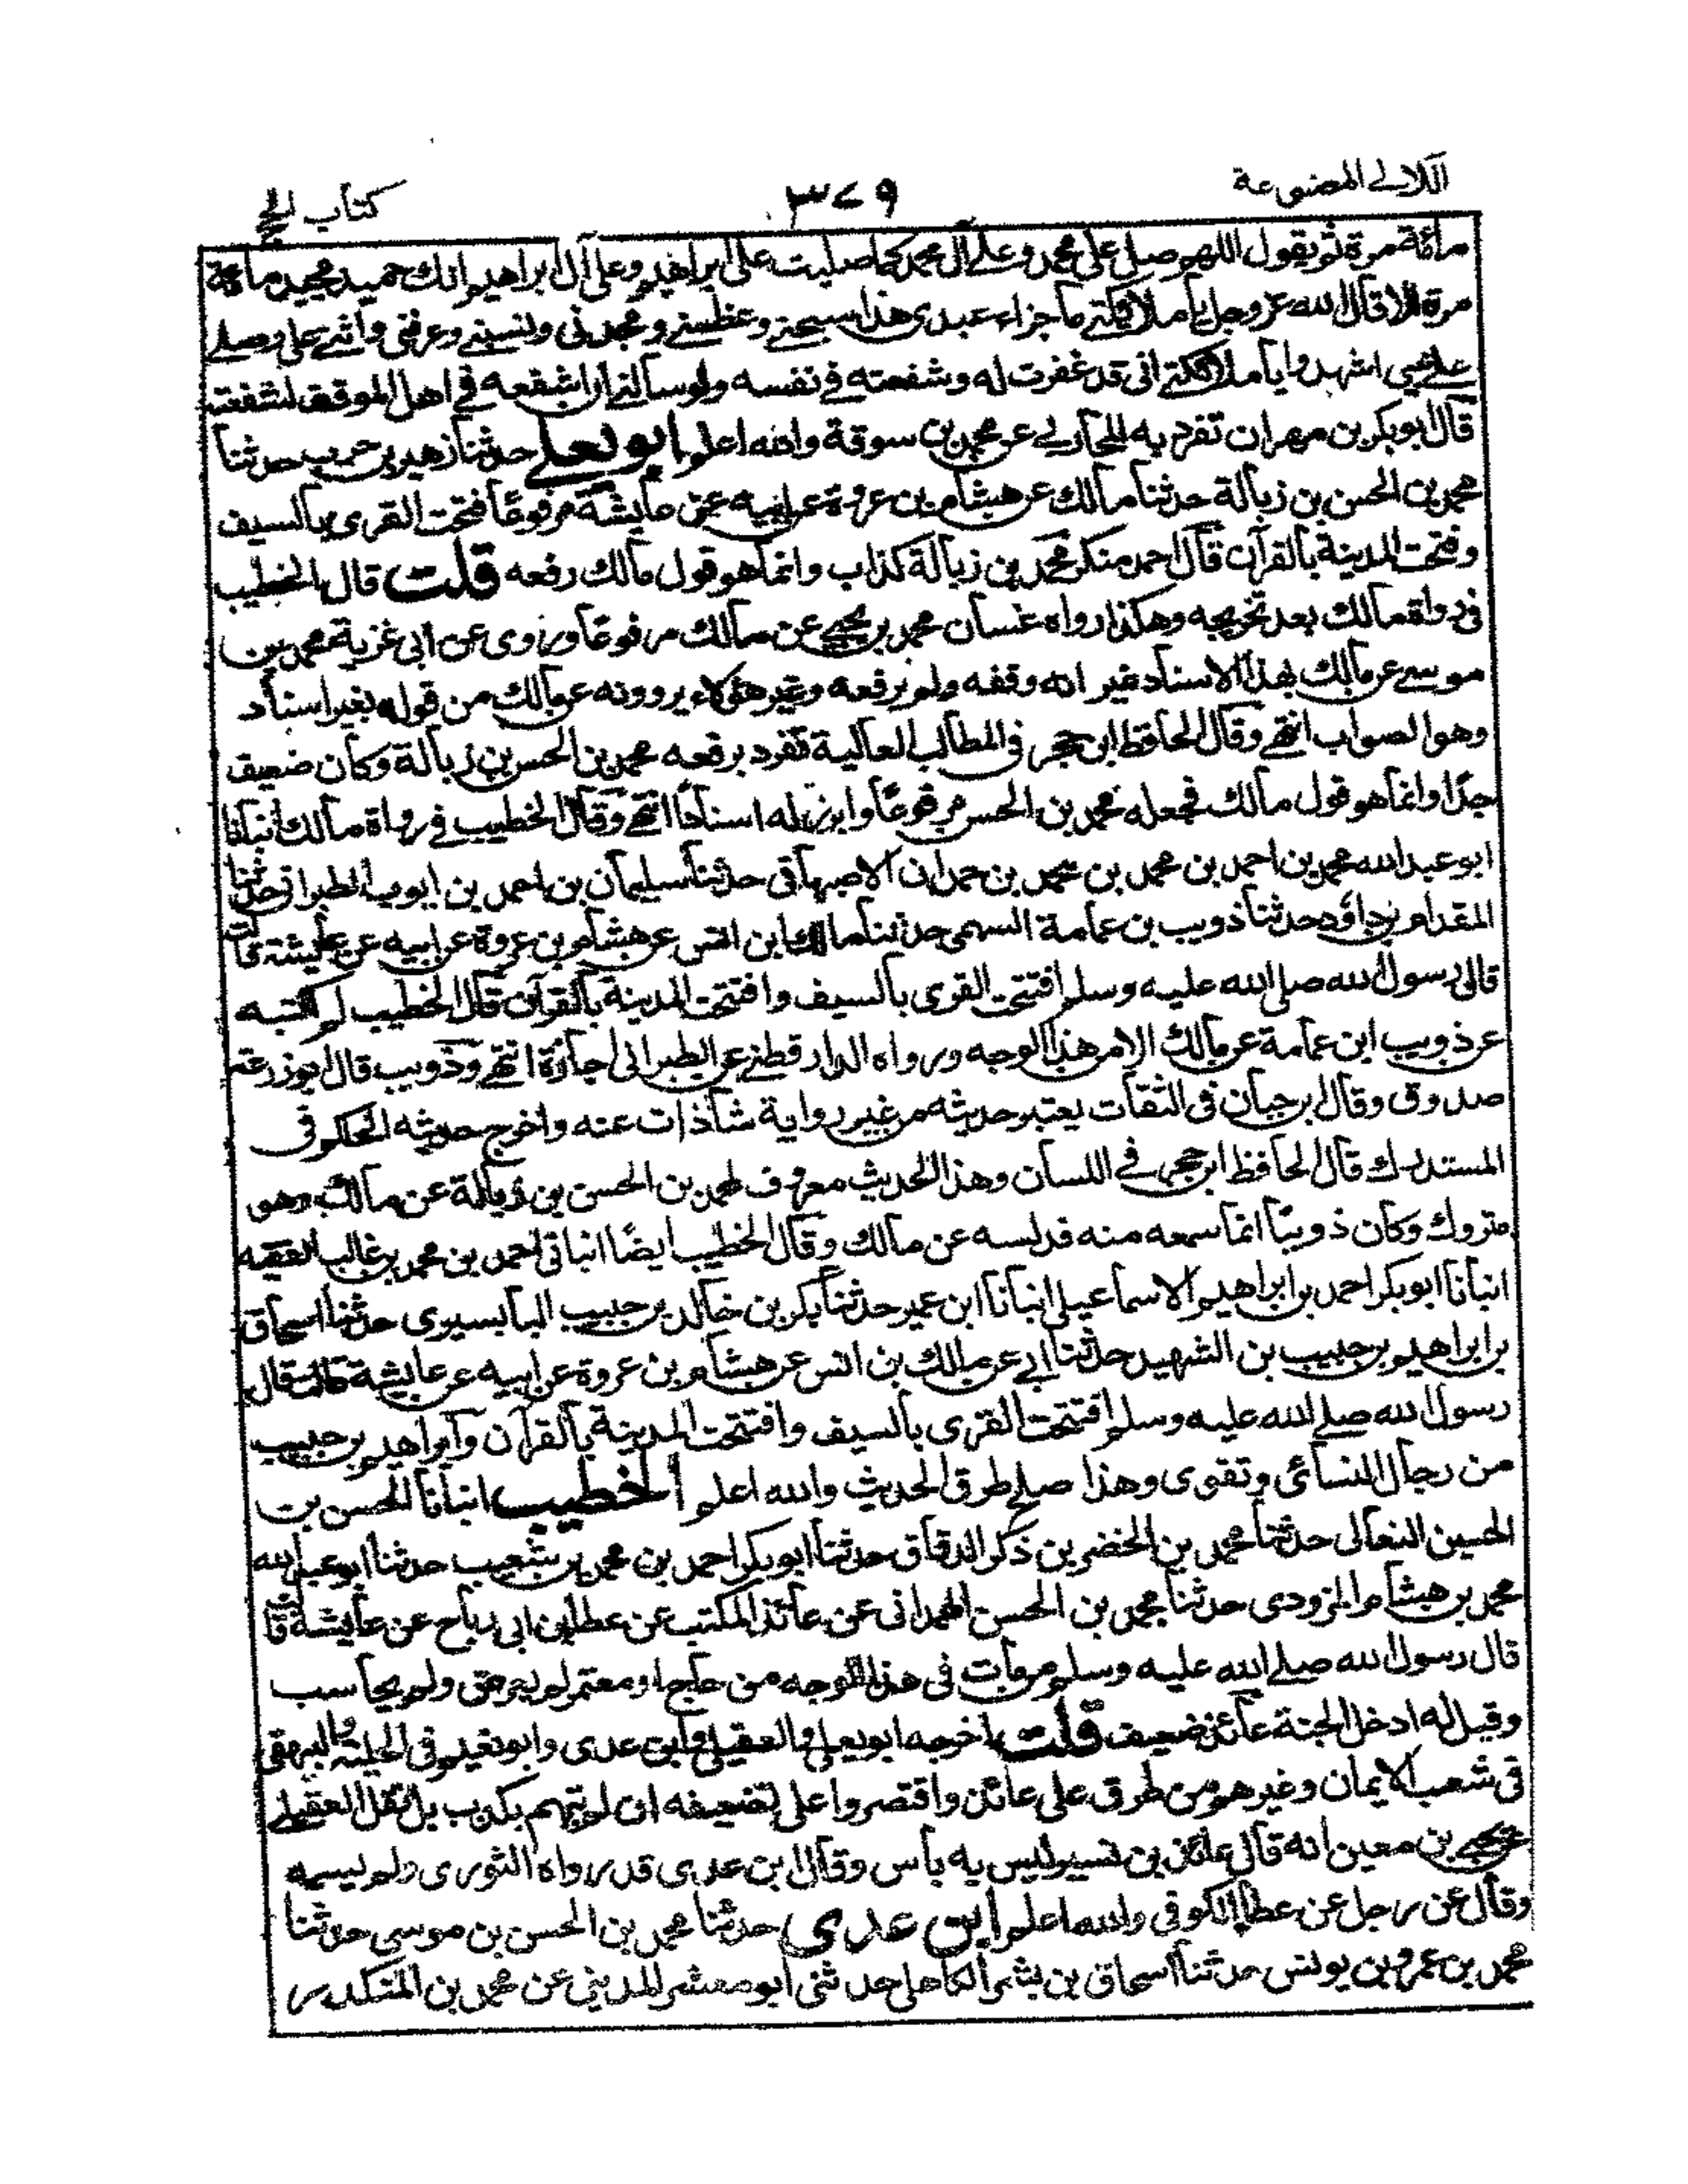 اللآلى المصنوعة
٣٧٩
كتاب الحج
مائة مرة ثم يقول اللهم صل على محمد وعلى آل محمد كما صليت على ابراهيم وعلى آل ابراهيم انك حميد مجيد مائة
مرة الا قال الله عز وجل يا ملائكتى ما جزاء عبدى هذا سبحنى وعظمنى ومجدنى ونسبنى وعرفنى واثنى على وصلى
على نبيى اشهدوا يا ملائكتى انى قد غفرت له وشفعته فى نفسه ولو سألنى ان اشفعه فى اهل الموقف لشفعته
قال ابو بكر بن مهران تفرد به المحاربى عن محمد بن سوقة والله اعلم ابو يعلى حدثنا زهير بن حرب حدثنا
محمد بن الحسن بن زبالة حدثنا مالك عن هشام بن عروة عن ابيه عن عايشة مرفوعًا فتحت القرى بالسيف
وفتحت المدينة بالقرآن قال احمد منكر محمد بن زبالة كذاب وانما هو قول مالك رفعه قلت قال الخطيب
فى رواة مالك بعد تخريجه وهكذا رواه غسان محمد بن يحيى عن مالك مرفوعًا وروى عن ابى غزية محمد بن
موسى عن مالك بهذا الاسناد غير انه وقفه ولم يرفعه وغير هؤلاء يروونه عن مالك من قوله بغير اسناد
وهو الصواب انتهى وقال الحافظ ابن حجر فى المطالب العالية تفرد برفعه محمد بن الحسن بن زبالة وكان ضعيف
جدًا وانما هو قول مالك فجعله محمد بن الحسن مرفوعًا وابرز له اسنادًا انتهى وقال الخطيب فى رواة مالك انبانا
ابو عبد الله محمد بن احمد بن محمد بن محمد بن حمدان الاصبهانى حدثنا سليمان بن احمد بن ايوب الطبرانى حدثنا
المقدام بن داؤد حدثنا ذويب بن عمامة السهمى حدثنا مالك ابن انس عن هشام بن عروة عن ابيه عن عايشة قالت
قال رسول الله صلى الله عليه وسلم افتتحت القرى بالسيف وافتتحت المدينة بالقرآن قال الخطيب لم اكتبه
عن ذويب ابن عمامة عن مالك الا من هذا الوجه ورواه الدارقطنى عن الطبرانى اجازة انتهى وذويب قال ابو زرعة
صدوق وقال ابن حبان فى الثقات يعتبر حديثه من غير رواية شاذات عنه واخرج حديثه الحاكم فى
المستدرك قال الحافظ ابن حجر فى اللسان وهذا الحديث معروف لمحمد بن الحسن بن زبالة عن مالك وهو
متروك وكان ذويبًا انما سمعه منه فدلسه عن مالك وقال الخطيب ايضًا انبانى احمد بن محمد بن غالب الفقيه
انبانا ابو بكر احمد بن ابراهيم الاسماعيلى انبانا ابن عمير حدثنا بكر بن خالد بن حبيب البابسيرى حدثنا اسحاق
بن ابراهيم بن حبيب بن الشهيد حدثنا ابى عن مالك بن انس عن هشام بن عروة عن ابيه عن عايشة قالت قال
رسول الله صلى الله عليه وسلم افتتحت القرى بالسيف وافتتحت المدينة بالقرآن وابراهيم بن حبيب
من رجال النسائى وتقوى وهذا صلح طرق الحديث والله اعلم الخطيب انبانا الحسن بن
الحسين النعالى حدثنا محمد بن الخضر بن ذكر الدقاق حدثنا ابو بكر احمد بن محمد بن شعيب حدثنا ابو عبد الله
محمد بن هشام المزودى حدثنا محمد بن الحسن الهمدانى عن عائذ المكتب عن عطا بن ابى رباح عن عايشة قالت
قال رسول الله صلى الله عليه وسلم من مات فى هذا الوجه من حاج او معتمر لم يعرض ولم يحاسب
وقيل له ادخل الجنة عائذ ضعيف قلت اخرجه ابو يعلى والعقيلى وابن عدى وابو نعيم فى الحلية والبيهقى
فى شعب الايمان وغيرهم من طرق على عائذ واقتصروا على تضعيفه ان لم يتهم بكذب بل نقل العقيلى
عن يحيى بن معين انه قال عائذ بن نسير ليس به بأس وقال ابن عدى قد رواه الثورى ولم يسمه
وقال عن رجل عن عطا الكوفى والله اعلم ابن عدى حدثنا محمد بن الحسن بن موسى حدثنا
محمد بن عمرو بن يونس حدثنا اسحاق بن بشر الكاهلى حدثنى ابو معشر المدينى عن محمد بن المنكدر